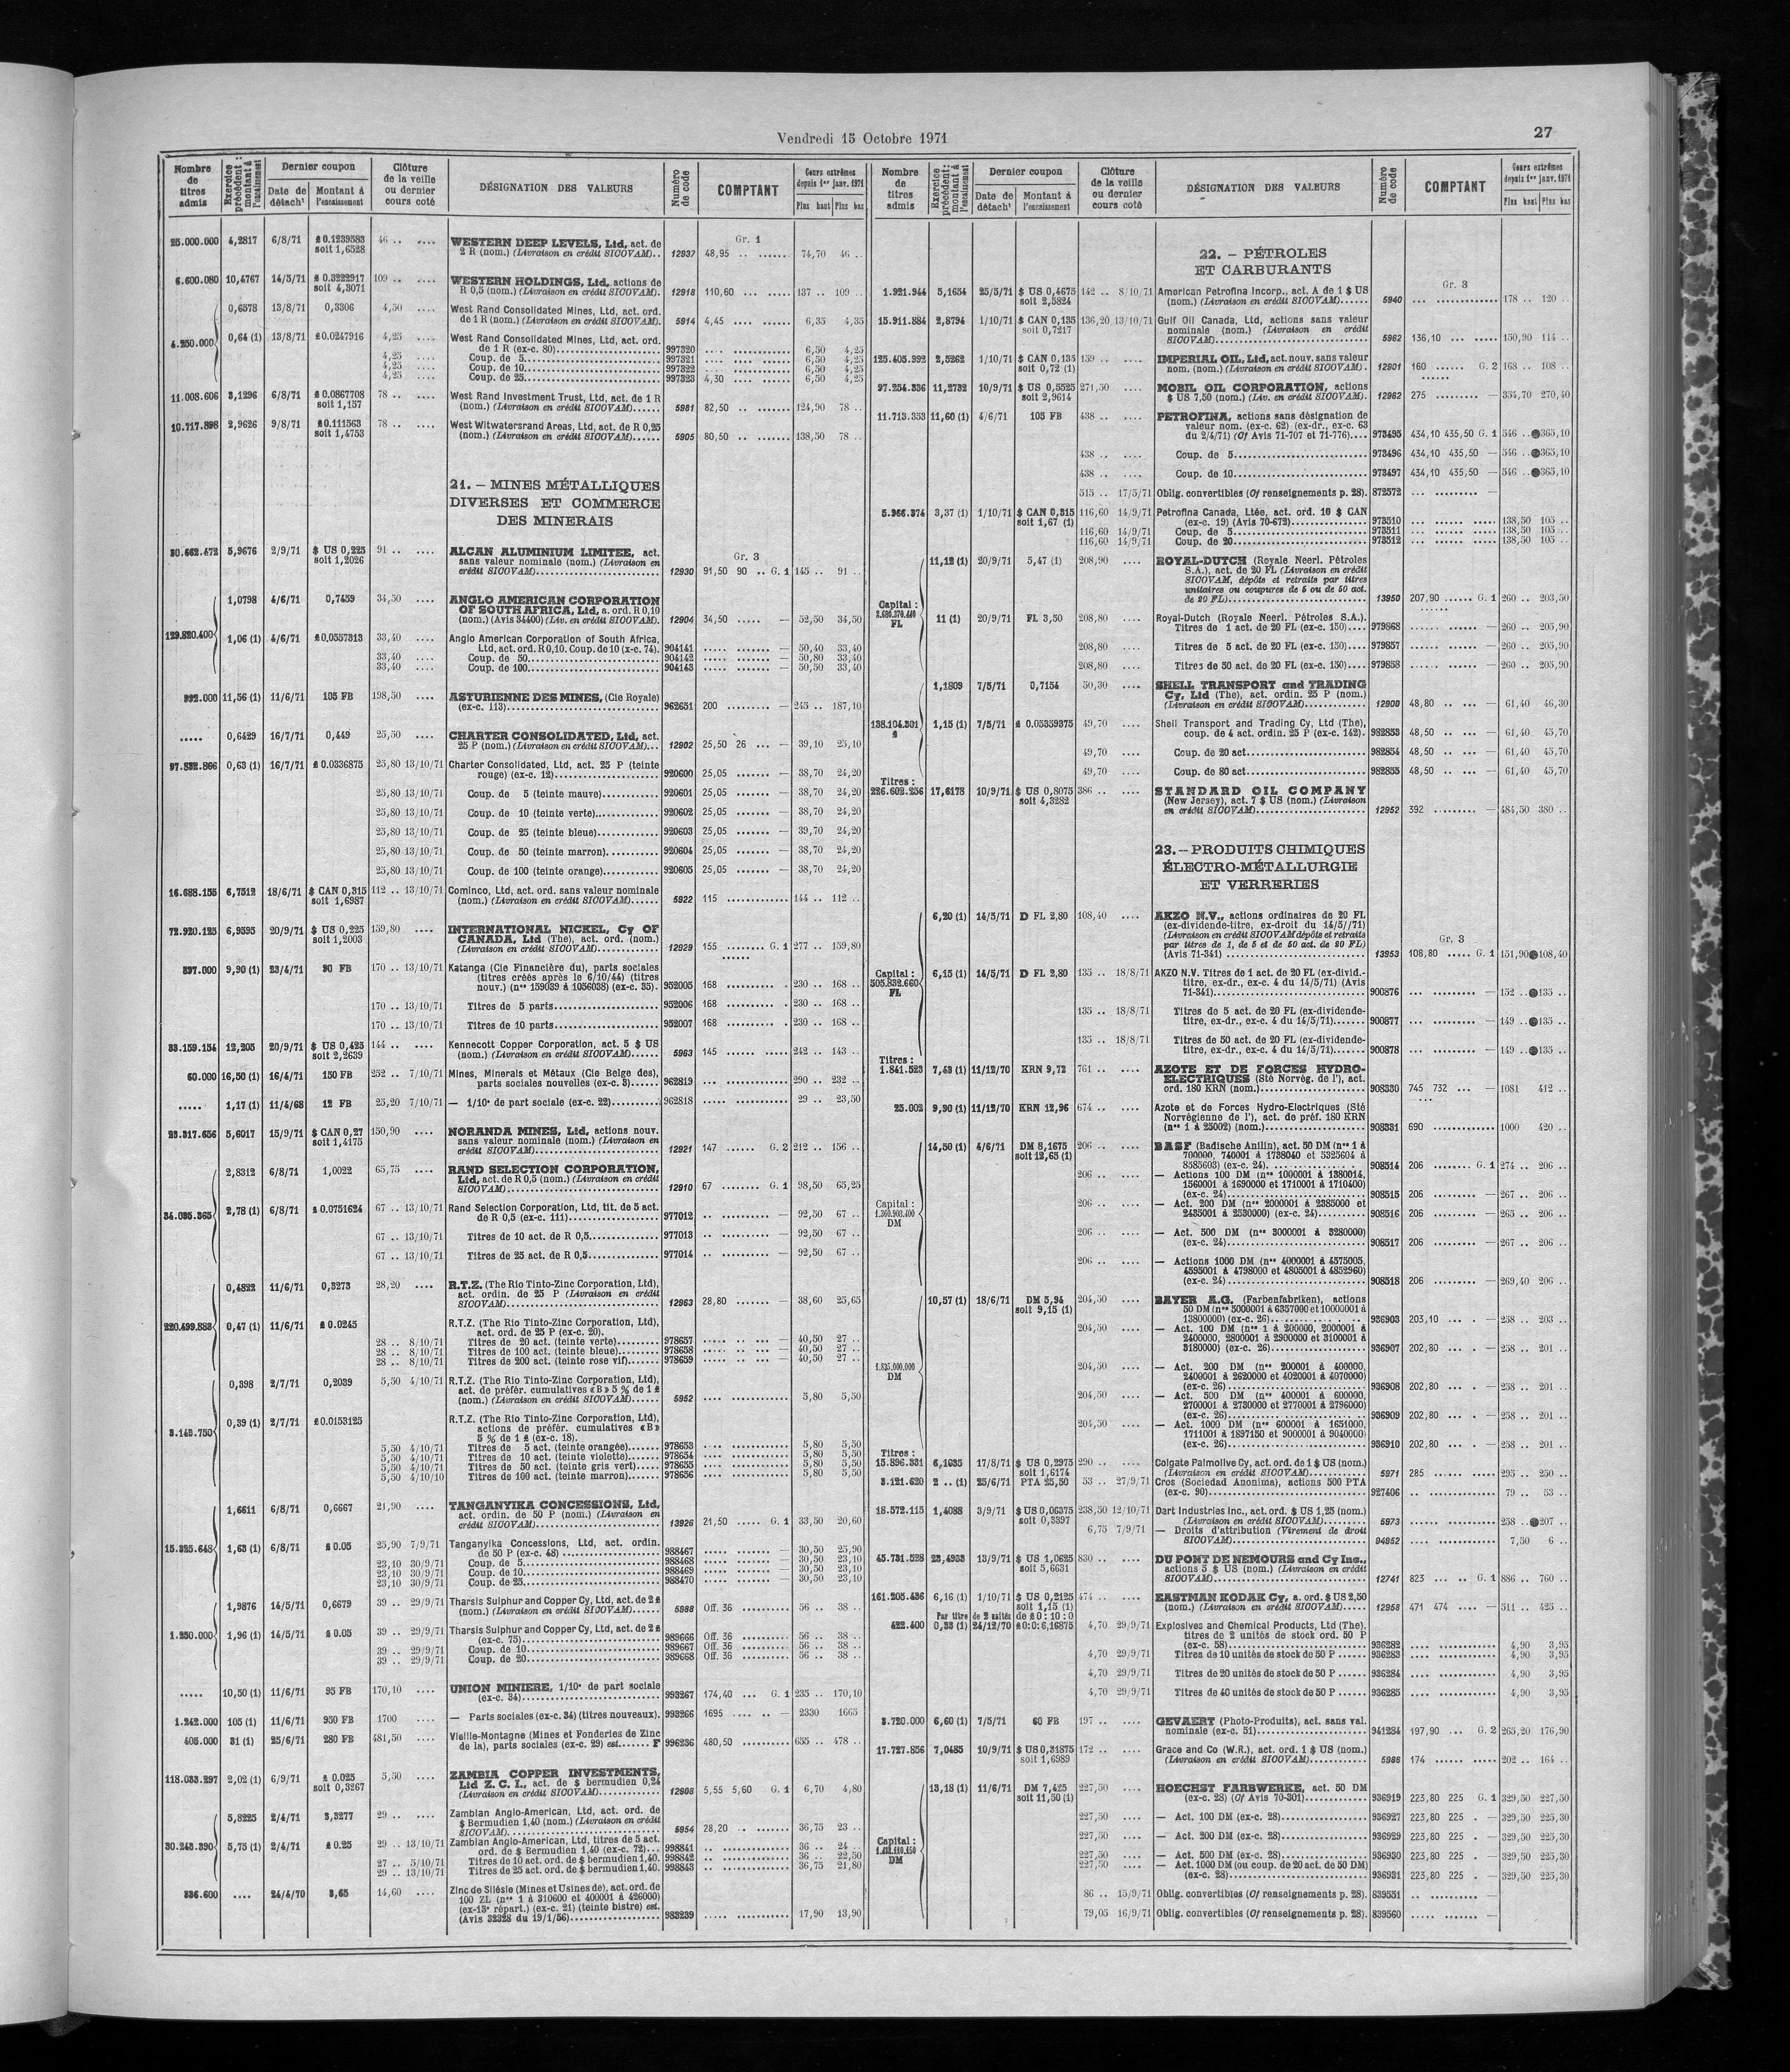 Vendredi 15 Octobre 1971
27
Nombre de titres admis
Exercice précédent : montant à l'encaissement
Dernier coupon
Date de détach¹
Montant à l'encaissement
Clôture de la veille ou dernier cours coté
DÉSIGNATION DES VALEURS
Numéro de code
COMPTANT
Cours extrêmes depuis 1er janv. 1971
Plus haut Plus bas
Gr. 1
25.000.000 4,2817 6/8/71 £ 0.1239583 46 .. .... WESTERN DEEP LEVELS, Ltd, act. de
soit 1,6528 2 R (nom.) (Livraison en crédit SICOVAM).. 12937 48,95 .. ...... 74,70 46 ..
6.600.080 10,4767 14/5/71 £ 0.3222917 109 .. .... WESTERN HOLDINGS, Ltd, actions de
soit 4,3071 R 0,5 (nom.) (Livraison en crédit SICOVAM). 12918 110,60 ... ...... 137 .. 109 ..
0,6578 13/8/71 0,3306 4,50 .... West Rand Consolidated Mines, Ltd, act. ord.
de 1 R (nom.) (Livraison en crédit SICOVAM). 5914 4,45 .... ...... 6,35 4,35
4.250.000 0,64 (1) 13/8/71 £ 0.0247916 4,25 .... West Rand Consolidated Mines, Ltd, act. ord.
de 1 R (ex-c. 80) 997320 6,50 4,25
4,25 .... Coup. de 5 997321 6,50 4,25
4,25 .... Coup. de 10 997322 6,50 4,25
4,25 .... Coup. de 25 997323 4,30 .... ...... 6,50 4,25
11.008.606 3,1296 6/8/71 £ 0.0867708 78 .. .... West Rand Investment Trust, Ltd, act. de 1 R
soit 1,157 (nom.) (Livraison en crédit SICOVAM)...... 5981 82,50 .. ....... 124,90 78 ..
10.717.898 2,9626 9/8/71 £ 0.111563 78 .. .... West Witwatersrand Areas, Ltd, act. de R 0,25
soit 1,4753 (nom.) (Livraison en crédit SICOVAM)...... 5905 80,50 .. ....... 138,50 78 ..
21. – MINES MÉTALLIQUES
DIVERSES ET COMMERCE
DES MINERAIS
Gr. 3
30.662.472 5,9676 2/9/71 $ US 0,225 91 .. .... ALCAN ALUMINIUM LIMITEE, act.
soit 1,2026 sans valeur nominale (nom.) (Livraison en
crédit SICOVAM) 12930 91,50 90 .. G. 1 145 .. 91 ..
1,0798 4/6/71 0,7459 34,50 .... ANGLO AMERICAN CORPORATION
OF SOUTH AFRICA, Ltd, a. ord. R 0,10
(nom.) (Avis 34400) (Liv. en crédit SICOVAM). 12904 34,50 ..... ..... 52,50 34,50
129.820.400 1,06 (1) 4/6/71 £ 0.0557313 33,40 .... Anglo American Corporation of South Africa,
Ltd, act. ord. R 0,10. Coup. de 10 (x-c. 74). 904141 — 50,40 33,40
33,40 .... Coup. de 50 904142 — 50,80 33,40
33,40 .... Coup. de 100 904143 — 50,50 33,40
392.000 11,56 (1) 11/6/71 105 FB 198,50 .... ASTURIENNE DES MINES, (Cie Royale)
(ex-c. 113) 962651 200 ........ — 245 .. 187,10
..... 0,6429 16/7/71 0,449 25,50 .... CHARTER CONSOLIDATED, Ltd, act.
25 P (nom.) (Livraison en crédit SICOVAM)... 12902 25,50 26 ... — 39,10 25,10
97.832.866 0,63 (1) 16/7/71 £ 0.0336875 25,80 13/10/71 Charter Consolidated, Ltd, act. 25 P (teinte
rouge) (ex-c. 12) 920600 25,05 ....... — 38,70 24,20
25,80 13/10/71 Coup. de 5 (teinte mauve) 920601 25,05 ....... — 38,70 24,20
25,80 13/10/71 Coup. de 10 (teinte verte) 920602 25,05 ....... — 38,70 24,20
25,80 13/10/71 Coup. de 25 (teinte bleue) 920603 25,05 ....... — 39,70 24,20
25,80 13/10/71 Coup. de 50 (teinte marron) 920604 25,05 ....... — 38,70 24,20
25,80 13/10/71 Coup. de 100 (teinte orange) 920605 25,05 ....... — 38,70 24,20
16.688.155 6,7512 18/6/71 $ CAN 0,315 112 .. 13/10/71 Cominco, Ltd, act. ord. sans valeur nominale
soit 1,6987 (nom.) (Livraison en crédit SICOVAM)...... 5922 115 ............. 144 .. 112 ..
72.920.125 6,9595 20/9/71 $ US 0,225 159,80 .... INTERNATIONAL NICKEL, Cy OF
soit 1,2003 CANADA, Ltd (The), act. ord. (nom.)
(Livraison en crédit SICOVAM) 12929 155 ........ G. 1 277 .. 159,80
897.000 9,90 (1) 23/4/71 90 FB 170 .. 13/10/71 Katanga (Cie Financière du), parts sociales
(titres créés après le 6/10/44) (titres
nouv.) (nos 159039 à 1056038) (ex-c. 35). 952005 168 .......... . 230 .. 168 ..
170 .. 13/10/71 Titres de 5 parts 952006 168 .......... . 230 .. 168 ..
170 .. 13/10/71 Titres de 10 parts 952007 168 .......... . 230 .. 168 ..
33.159.154 12,205 20/9/71 $ US 0,425 144 .. .... Kennecott Copper Corporation, act. 5 $ US
soit 2,2639 (nom.) (Livraison en crédit SICOVAM)...... 5963 145 ...... ..... 242 .. 143 ..
60.000 16,50 (1) 16/4/71 150 FB 252 .. 7/10/71 Mines, Minerais et Métaux (Cie Belge des),
parts sociales nouvelles (ex-c. 3) 962819 290 .. 232 ..
..... 1,17 (1) 11/4/68 12 FB 25,20 7/10/71 — 1/10e de part sociale (ex-c. 22) 962818 29 .. 23,50
23.317.656 5,6017 15/9/71 $ CAN 0,27 150,90 .... NORANDA MINES, Ltd, actions nouv.
soit 1,4175 sans valeur nominale (nom.) (Livraison en
crédit SICOVAM) 12921 147 ...... G. 2 212 .. 156 ..
2,8312 6/8/71 1,0022 65,75 .... RAND SELECTION CORPORATION,
Ltd, act. de R 0,5 (nom.) (Livraison en crédit
SICOVAM) 12910 67 ........ G. 1 98,50 65,25
34.035.365 2,78 (1) 6/8/71 £ 0.0751624 67 .. 13/10/71 Rand Selection Corporation, Ltd, tit. de 5 act.
de R 0,5 (ex-c. 111) 977012 — 92,50 67 ..
67 .. 13/10/71 Titres de 10 act. de R 0,5 977013 — 92,50 67 ..
67 .. 13/10/71 Titres de 25 act. de R 0,5 977014 — 92,50 67 ..
0,4822 11/6/71 0,3273 28,20 .... R.T.Z. (The Rio Tinto-Zinc Corporation, Ltd),
act. ordin. de 25 P (Livraison en crédit
SICOVAM) 12963 28,80 ..... — 38,60 25,65
220.499.888 0,47 (1) 11/6/71 £ 0.0245 R.T.Z. (The Rio Tinto-Zinc Corporation, Ltd),
act. ord. de 25 P (ex-c. 20).
28 .. 8/10/71 Titres de 20 act. (teinte verte) 978657 — 40,50 27 ..
28 .. 8/10/71 Titres de 100 act. (teinte bleue) 978658 — 40,50 27 ..
28 .. 8/10/71 Titres de 200 act. (teinte rose vif) 978659 — 40,50 27 ..
0,398 2/7/71 0,2039 5,50 4/10/71 R.T.Z. (The Rio Tinto-Zinc Corporation, Ltd),
act. de préfér. cumulatives «B» 5 % de 1 £
(nom.) (Livraison en crédit SICOVAM)...... 5952 5,80 5,50
3.143.750 0,39 (1) 2/7/71 £ 0.0153125 R.T.Z. (The Rio Tinto-Zinc Corporation, Ltd),
actions de préfér. cumulatives «B»
5 % de 1 £ (ex-c. 18).
5,50 4/10/71 Titres de 5 act. (teinte orangée) 978653 5,80 5,50
5,50 4/10/71 Titres de 10 act. (teinte violette) 978654 5,80 5,50
5,50 4/10/71 Titres de 50 act. (teinte gris vert) 978655 5,80 5,50
5,50 4/10/10 Titres de 100 act. (teinte marron) 978656 5,80 5,50
1,6611 6/8/71 0,6667 21,90 .... TANGANYIKA CONCESSIONS, Ltd,
act. ordin. de 50 P (nom.) (Livraison en
crédit SICOVAM) 13926 21,50 ..... G. 1 33,50 20,60
15.325.648 1,63 (1) 6/8/71 £ 0.05 25,90 7/9/71 Tanganyika Concessions, Ltd, act. ordin.
de 50 P (ex-c. 48) 988467 — 30,50 25,90
23,10 30/9/71 Coup. de 5 988468 — 30,50 23,10
23,10 30/9/71 Coup. de 10 988469 — 30,50 23,10
23,10 30/9/71 Coup. de 25 988470 — 30,50 23,10
1,9876 14/5/71 0,6679 39 .. 29/9/71 Tharsis Sulphur and Copper Cy, Ltd, act. de 2 £
(nom.) (Livraison en crédit SICOVAM)...... 5988 Off. 36 56 .. 38 ..
1.250.000 1,96 (1) 14/5/71 £ 0.05 39 .. 29/9/71 Tharsis Sulphur and Copper Cy, Ltd, act. de 2 £
(ex-c. 75) 989666 Off. 36 56 .. 38 ..
39 .. 29/9/71 Coup. de 10 989667 Off. 36 56 .. 38 ..
39 .. 29/9/71 Coup. de 20 989668 Off. 36 56 .. 38 ..
..... 10,50 (1) 11/6/71 95 FB 170,10 .... UNION MINIERE, 1/10e de part sociale
(ex-c. 34) 993267 174,40 ... G. 1 235 .. 170,10
1.242.000 105 (1) 11/6/71 950 FB 1700 .... — Parts sociales (ex-c. 34) (titres nouveaux). 993266 1695 .... .. — 2330 1665
405.000 31 (1) 25/6/71 280 FB 481,50 .... Vieille-Montagne (Mines et Fonderies de Zinc
de la), parts sociales (ex-c. 29) est. F 996236 480,50 .......... 655 .. 478 ..
118.033.297 2,02 (1) 6/9/71 £ 0.025 5,50 .... ZAMBIA COPPER INVESTMENTS,
soit 0,3267 Ltd Z. C. I., act. de $ bermudien 0,24
(Livraison en crédit SICOVAM) 12908 5,55 5,60 G. 1 6,70 4,80
5,8225 2/4/71 3,3277 29 .. .... Zambian Anglo-American, Ltd, act. ord. de
$ Bermudien 1,40 (nom.) (Livraison en crédit
SICOVAM) 5954 28,20 .. ....... 36,75 23 ..
30.243.390 5,75 (1) 2/4/71 £ 0.25 29 .. 13/10/71 Zambian Anglo-American, Ltd, titres de 5 act.
ord. de $ Bermudien 1,40 (ex-c. 72) 998841 36 .. 24 ..
27 .. 5/10/71 Titres de 10 act. ord. de $ bermudien 1,40. 998842 36 .. 22,50
29 .. 13/10/71 Titres de 25 act. ord. de $ bermudien 1,40. 998843 36,75 21,80
336.600 .... 24/4/70 3,65 14,60 .... Zinc de Silésie (Mines et Usines de), act. ord. de
100 ZL (nos 1 à 310600 et 400001 à 426000)
(ex-13e répart.) (ex-c. 21) (teinte bistre) est.
(Avis 32328 du 19/1/56) 983239 17,90 13,90
Nombre de titres admis
Exercice précédent : montant à l'encaissement
Dernier coupon
Date de détach¹
Montant à l'encaissement
Clôture de la veille ou dernier cours coté
DÉSIGNATION DES VALEURS
Numéro de code
COMPTANT
Cours extrêmes depuis 1er janv. 1971
Plus haut Plus bas
22. – PÉTROLES
ET CARBURANTS
Gr. 3
1.921.944 5,1654 25/5/71 $ US 0,4675 142 .. 8/10/71 American Petrofina Incorp., act. A de 1 $ US
soit 2,5824 (nom.) (Livraison en crédit SICOVAM)...... 5940 178 .. 120 ..
15.911.884 2,8794 1/10/71 $ CAN 0,135 136,20 13/10/71 Gulf Oil Canada, Ltd, actions sans valeur
soit 0,7217 nominale (nom.) (Livraison en crédit
SICOVAM) 5962 136,10 ... ...... 150,90 114 ..
125.405.992 2,5262 1/10/71 $ CAN 0,135 159 .. .... IMPERIAL OIL, Ltd, act. nouv. sans valeur
soit 0,72 (1) nom. (nom.) (Livraison en crédit SICOVAM). 12901 160 ...... G. 2 168 .. 108 ..
97.254.336 11,2732 10/9/71 $ US 0,5525 271,50 .... MOBIL OIL CORPORATION, actions
soit 2,9614 $ US 7,50 (nom.) (Liv. en crédit SICOVAM). 12962 275 ........ — 354,70 270,40
11.713.353 11,60 (1) 4/6/71 105 FB 438 .. .... PETROFINA, actions sans désignation de
valeur nom. (ex-c. 62) (ex-dr., ex-c. 63
du 2/4/71) (Of Avis 71-707 et 71-776) 973495 434,10 435,50 G. 1 546 .. ●365,10
438 .. .... Coup. de 5 973496 434,10 435,50 — 546 .. ●365,10
438 .. .... Coup. de 10 973497 434,10 435,50 — 546 .. ●365,10
515 .. 17/5/71 Oblig. convertibles (Of renseignements p. 28). 872572 ... ......... —
5.966.374 3,37 (1) 1/10/71 $ CAN 0,315 116,60 14/9/71 Petrofina Canada, Ltée, act. ord. 10 $ CAN
soit 1,67 (1) (ex-c. 19) (Avis 70-672) 973510 138,50 105 ..
116,60 14/9/71 Coup. de 5 973511 138,50 105 ..
116,60 14/9/71 Coup. de 20 973512 138,50 105 ..
11,12 (1) 20/9/71 5,47 (1) 208,90 .... ROYAL-DUTCH (Royale Neerl. Pétroles
S.A.), act. de 20 FL (Livraison en crédit
SICOVAM, dépôts et retraits par titres
unitaires ou coupures de 5 ou de 50 act.
de 20 FL) 13950 207,90 ...... G. 1 260 .. 203,50
Capital : 2.680.370.440 FL
11 (1) 20/9/71 FL 3,50 208,80 .... Royal-Dutch (Royale Neerl. Pétroles S.A.).
Titres de 1 act. de 20 FL (ex-c. 150) 979868 — 260 .. 205,90
208,80 .... Titres de 5 act. de 20 FL (ex-c. 150) 979857 — 260 .. 205,90
208,80 .... Titres de 50 act. de 20 FL (ex-c. 150) 979858 — 260 .. 205,90
1,1809 7/5/71 0,7154 50,30 .... SHELL TRANSPORT and TRADING
Cy, Ltd (The), act. ordin. 25 P (nom.)
(Livraison en crédit SICOVAM) 12900 48,80 .. ... — 61,40 46,30
138.104.301 £ 1,15 (1) 7/5/71 £ 0.05359375 49,70 .... Shell Transport and Trading Cy, Ltd (The),
coup. de 4 act. ordin. 25 P (ex-c. 142). 982853 48,50 .. ... — 61,40 45,70
49,70 .... Coup. de 20 act. 982854 48,50 .. ... — 61,40 45,70
49,70 .... Coup. de 80 act. 982855 48,50 .. ... — 61,40 45,70
Titres :
226.602.256 17,6178 10/9/71 $ US 0,8075 386 .. .... STANDARD OIL COMPANY
soit 4,3282 (New Jersey), act. 7 $ US (nom.) (Livraison
en crédit SICOVAM) 12952 392 ......... — 484,50 380 ..
23. – PRODUITS CHIMIQUES
ÉLECTRO-MÉTALLURGIE
ET VERRERIES
Gr. 3
6,20 (1) 14/5/71 D FL 2,80 108,40 .... AKZO N.V., actions ordinaires de 20 FL
(ex-dividende-titre, ex-droit du 14/5/71)
(Livraison en crédit SICOVAM dépôts et retraits
par titres de 1, de 5 et de 50 act. de 20 FL)
(Avis 71-341) 13953 108,80 ..... G. 1 151,90 ●108,40
Capital : 505.832.660 FL
6,15 (1) 14/5/71 D FL 2,80 135 .. 18/8/71 AKZO N.V. Titres de 1 act. de 20 FL (ex-divid.-
titre, ex-dr., ex-c. 4 du 14/5/71) (Avis
71-341) 900876 — 152 .. ●135 ..
135 .. 18/8/71 Titres de 5 act. de 20 FL (ex-dividende-
titre, ex-dr., ex-c. 4 du 14/5/71) 900877 — 149 .. ●135 ..
135 .. 18/8/71 Titres de 50 act. de 20 FL (ex-dividende-
titre, ex-dr., ex-c. 4 du 14/5/71) 900878 — 149 .. ●135 ..
Titres :
1.841.523 7,43 (1) 11/12/70 KRN 9,72 761 .. .... AZOTE ET DE FORCES HYDRO-
ELECTRIQUES (Sté Norvég. de l'), act.
ord. 180 KRN (nom.) 908330 745 732 ... — 1081 412 ..
25.002 9,90 (1) 11/12/70 KRN 12,96 674 .. .... Azote et de Forces Hydro-Electriques (Sté
Norvégienne de l'), act. de préf. 180 KRN
(nos 1 à 25002) (nom.) 908331 690 .......... — 1000 420 ..
14,50 (1) 4/6/71 DM 8,1675 206 .. .... BASF (Badische Anilin), act. 50 DM (nos 1 à
soit 12,65 (1) 700000, 740001 à 1738040 et 5325604 à
8585603) (ex-c. 24) 908514 206 ........ G. 1 274 .. 206 ..
206 .. .... — Actions 100 DM (nos 1000001 à 1380014,
1560001 à 1690000 et 1710001 à 1710400)
(ex-c. 24) 908515 206 ......... — 267 .. 206 ..
Capital : 1.360.903.400 DM
206 .. .... — Act. 200 DM (nos 2000001 à 2385000 et
2435001 à 2530000) (ex-c. 24) 908516 206 ......... — 265 .. 206 ..
206 .. .... — Act. 500 DM (nos 3000001 à 3280000)
(ex-c. 24) 908517 206 ......... — 267 .. 206 ..
206 .. .... — Actions 1000 DM (nos 4000001 à 4575005,
4595001 à 4798000 et 4805001 à 4852960)
(ex-c. 24) 908518 206 ......... — 269,40 206 ..
10,57 (1) 18/6/71 DM 5,94 204,50 .... BAYER A.G. (Farbenfabriken), actions
soit 9,15 (1) 50 DM (nos 5000001 à 6357000 et 10000001 à
13800000) (ex-c. 26) 936903 203,10 ... . — 258 .. 203 ..
204,50 .... — Act. 100 DM (nos 1 à 200000, 2000001 à
2400000, 2800001 à 2900000 et 3100001 à
3180000) (ex-c. 26) 936907 202,80 ... . — 258 .. 201 ..
1.835.000.000 DM
204,50 .... — Act. 200 DM (nos 200001 à 400000,
2400001 à 2620000 et 4020001 à 4070000)
(ex-c. 26) 936908 202,80 ... . — 258 .. 201 ..
204,50 .... — Act. 500 DM (nos 400001 à 600000,
2700001 à 2730000 et 2770001 à 2796000)
(ex-c. 26) 936909 202,80 ... . — 258 .. 201 ..
204,50 .... — Act. 1000 DM (nos 600001 à 1651000,
1711001 à 1897150 et 9000001 à 9040000)
(ex-c. 26) 936910 202,80 ... . — 258 .. 201 ..
Titres :
15.896.331 6,1035 17/8/71 $ US 0,2975 290 .. .... Colgate Palmolive Cy, act. ord. de 1 $ US (nom.)
soit 1,6174 (Livraison en crédit SICOVAM) 5971 285 ...... ..... 295 .. 250 ..
3.121.620 2 .. (1) 25/6/71 PTA 25,50 53 .. 27/9/71 Cros (Sociedad Anonima), actions 500 PTA
(ex-c. 90) 927406 79 .. 53 ..
18.572.115 1,4088 3/9/71 $ US 0,06375 238,50 12/10/71 Dart Industries Inc., act. ord. $ US 1,25 (nom.)
soit 0,3397 (Livraison en crédit SICOVAM) 5973 258 .. ●207 ..
6,75 7/9/71 — Droits d'attribution (Virement de droit
SICOVAM) 94952 7,50 6 ..
45.731.528 23,4958 13/9/71 $ US 1,0625 830 .. .... DU PONT DE NEMOURS and Cy Inc.,
soit 5,6631 actions 5 $ US (nom.) (Livraison en crédit
SICOVAM) 12741 823 ... .. G. 1 886 .. 760 ..
161.205.486 6,16 (1) 1/10/71 $ US 0,2125 474 .. .... EASTMAN KODAK Cy, a. ord. $ US 2,50
soit 1,15 (1) (nom.) (Livraison en crédit SICOVAM) 12958 471 474 .... — 511 .. 425 ..
Par titre de 2 unités de £ 0 : 10 : 0
422.400 0,33 (1) 24/12/70 £ 0:0:6,16875 4,70 29/9/71 Explosives and Chemical Products, Ltd (The),
titres de 2 unités de stock ord. 50 P
(ex-c. 58) 936282 4,90 3,95
4,70 29/9/71 Titres de 10 unités de stock de 50 P 936283 4,90 3,95
4,70 29/9/71 Titres de 20 unités de stock de 50 P 936284 4,90 3,95
4,70 29/9/71 Titres de 40 unités de stock de 50 P 936285 4,90 3,95
3.720.000 6,60 (1) 7/5/71 60 FB 197 .. .... GEVAERT (Photo-Produits), act. sans val.
nominale (ex-c. 51) 941284 197,90 ... G. 2 265,20 176,90
17.727.856 7,0485 10/9/71 $ US 0,31875 172 .. .... Grace and Co (W.R.), act. ord. 1 $ US (nom.)
soit 1,6989 (Livraison en crédit SICOVAM) 5986 174 ...... ..... 202 .. 164 ..
13,18 (1) 11/6/71 DM 7,425 227,50 .... HOECHST FARBWERKE, act. 50 DM
soit 11,50 (1) (ex-c. 28) (Of Avis 70-301) 936919 223,80 225 G. 1 329,50 227,50
227,50 .... — Act. 100 DM (ex-c. 28) 936927 223,80 225 . — 329,50 225,30
Capital : DM
227,50 .... — Act. 200 DM (ex-c. 28) 936929 223,80 225 . — 329,50 225,30
227,50 .... — Act. 500 DM (ex-c. 28) 936930 223,80 225 . — 329,50 225,30
227,50 .... — Act. 1000 DM (ou coup. de 20 act. de 50 DM)
(ex-c. 28) 936931 223,80 225 . — 329,50 225,30
86 .. 15/9/71 Oblig. convertibles (Of renseignements p. 28). 839531 .. .......... —
79,05 16/9/71 Oblig. convertibles (Of renseignements p. 28). 839560 ..... ....... —